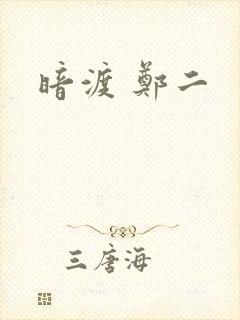 暗渡 鄭二
三唐海